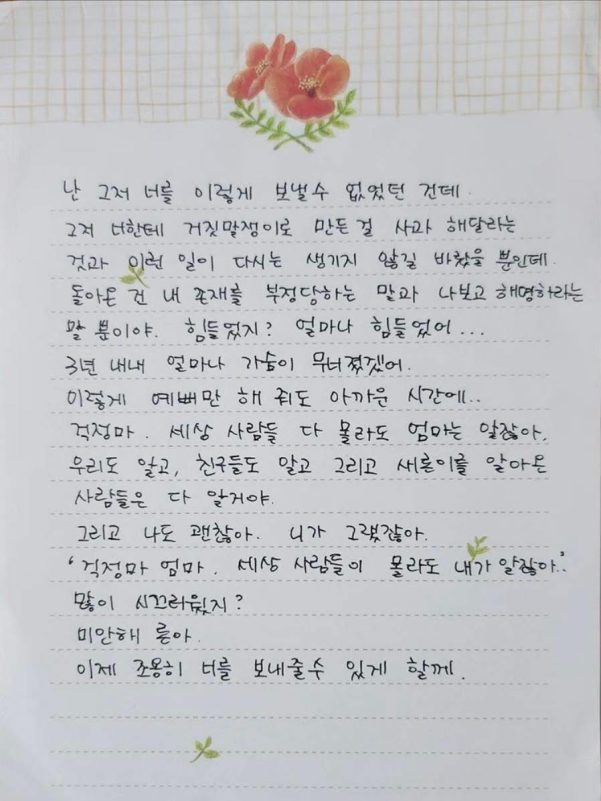 난 그저 너를 이렇게 보낼수 없었던 건데.
그저 너한테 거짓말쟁이로 만든걸 사과 해달라는
것과 이런 일이 다시는 생기지 않길 바랬을 뿐인데.
돌아온 건 내 존재를 부정당하는 말과 나보고 해명하라는
말 뿐이야. 힘들었지? 얼마나 힘들었어...
3년 내내 얼마나 가슴이 무너졌겠어.
이렇게 예뻐만 해 줘도 아까운 시간에..
걱정마. 세상 사람들 다 몰라도 엄마는 알잖아.
우리도 알고, 친구들도 알고 그리고 새론이를 알아온
사람들은 다 알거야.
그리고 나도 괜찮아. 니가 그랬잖아.
'걱정마 엄마. 세상 사람들이 몰라도 내가 알잖아.'
많이 시끄러웠지?
미안해 론아.
이제 조용히 너를 보내줄수 있게 할께.